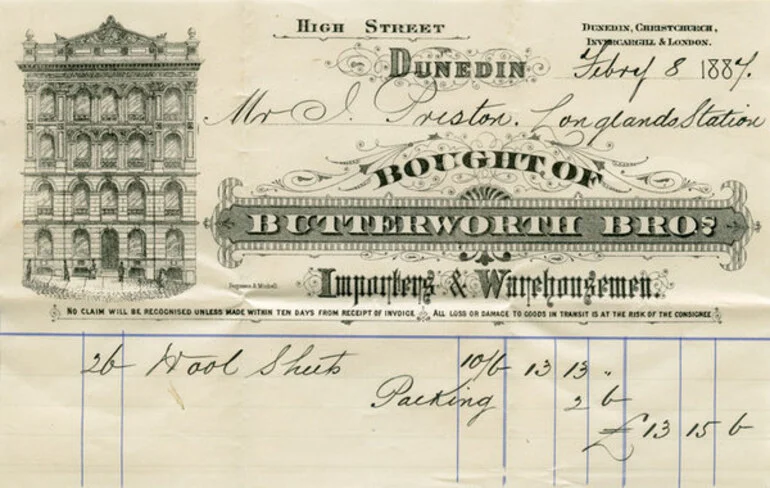 HIGH STREET
DUNEDIN, CHRISTCHURCH,
INVERCARGILL & LONDON.
DUNEDIN Febry 8 1887.
Mr J. Preston. Longlands Station
BOUGHT OF
BUTTERWORTH BROS
Importers & Warehousemen.
Ferguson & Mitchell
NO CLAIM WILL BE RECOGNISED UNLESS MADE WITHIN TEN DAYS FROM RECEIPT OF INVOICE ALL LOSS OR DAMAGE TO GOODS IN TRANSIT IS AT THE RISK OF THE CONSIGNEE
26 Wool Sheets 10/6 13 13 "
Packing 2 6
£ 13 15 6